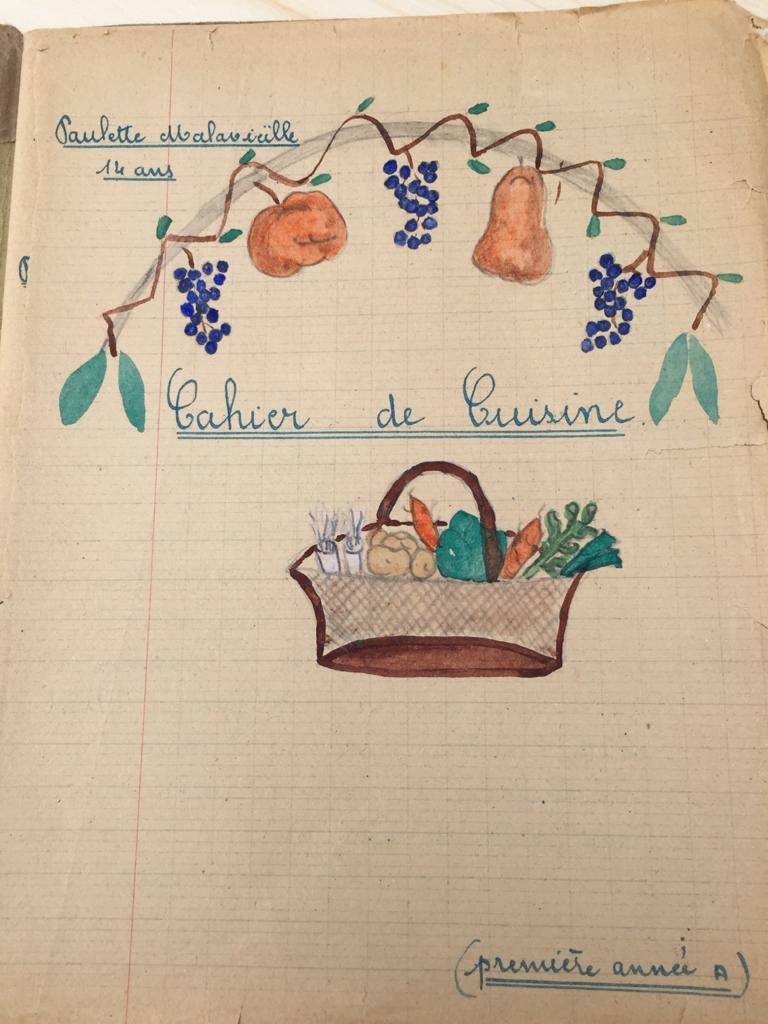 Paulette Malavieille
14 ans
Cahier de Cuisine
(première année A)